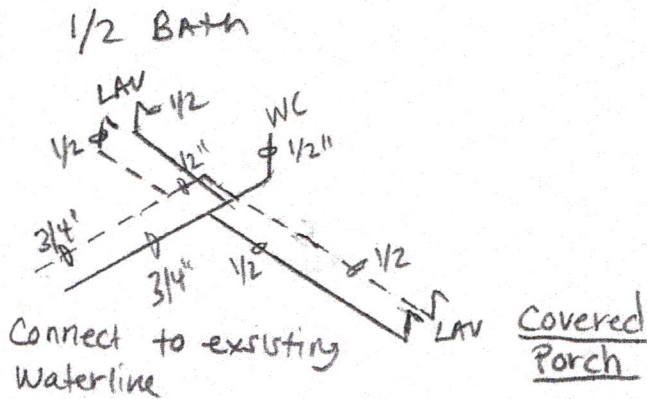 1/2 BAth
LAV
1/2
WC
1/2
1/2"
1/2"
3/4'
3/4"
1/2
1/2
LAV
Covered
Porch
Connect to exsisting
Waterline